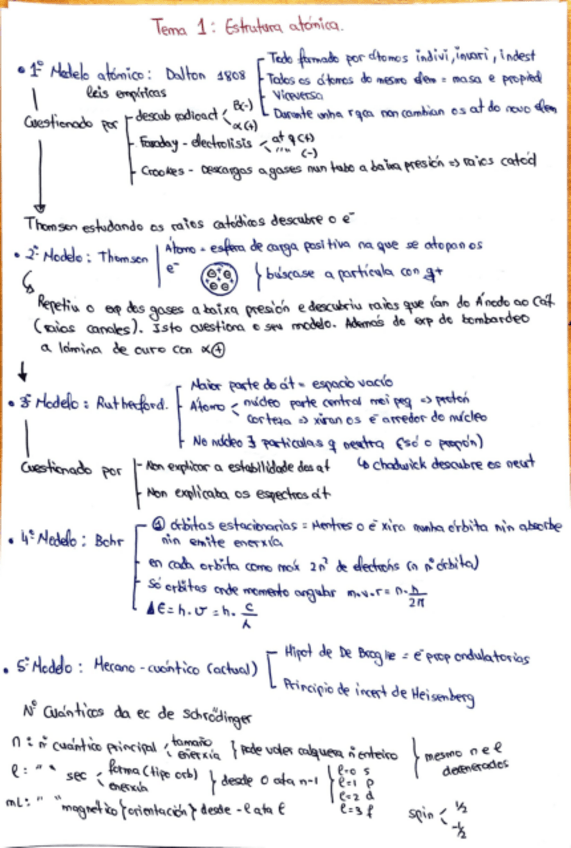 Tema 1: Estrutura atómica.
• 1º Modelo atómico: Dalton 1808
leis empíricas
Todo formado por átomos indivi, invari, indest
Todos os átomos do mesmo elem = masa e propied
Viceversa
Durante unha rqca non cambian os at do novo elem
Cuestionado por
descub radioact β(-) α(+)
Faraday - electrolisis at q (+) " " (-)
Crookes - Descargas a gases nun tubo a baixa presión => raios catod
Thomson estudando os raios catódicos descubre o e⁻
• 2º Modelo: Thomson
Átomo = esfera de carga positiva na que se atopan os
e⁻ } búscase a partícula con q+
Repetiu o exp dos gases a baixa presión e descubriu raios que ían do Ánodo ao Cát
(raios canales). Isto cuestiona o seu modelo. Ademas do exp do bombardeo
a lámina de ouro con α⊕
• 3º Modelo: Rutherford.
Maior parte do át = espacio vacío
Átomo núcleo parte central moi peq => protón
corteza => xiran os e⁻ arredor do núcleo
No núcleo ∃ partículas q neutra (só o propón)
↳ chadwick descubre os neut
Cuestionado por
Non explicar a estabilidade dos at
Non explicaba os espectros át
• 4º Modelo: Bohr
órbitas estacionarias = Mentres o e⁻ xira nunha órbita nin absorbe
nin emite enerxía
en cada orbita como máx 2n² de electróns (n nº órbita)
Só orbitas onde momento angular m.v.r = n. h/2π
ΔE = h.υ = h. c/λ
• 5º Modelo: Mecano-cuántico (actual)
Hipot de De Broglie = e⁻ prop ondulatorias
Principio de incert de Heisenberg
Nº Cuánticos da ec de Schrödinger
n: nº cuántico principal tamaño enerxía } pode valer calquera nº enteiro } mesmo n e l degenerados
l: " " sec forma (tipo orb) enerxía } desde 0 ata n-1
l=0 s
l=1 p
l=2 d
l=3 f
mL: " " magnético {orientación} desde -l ata l
spin 1/2 -1/2